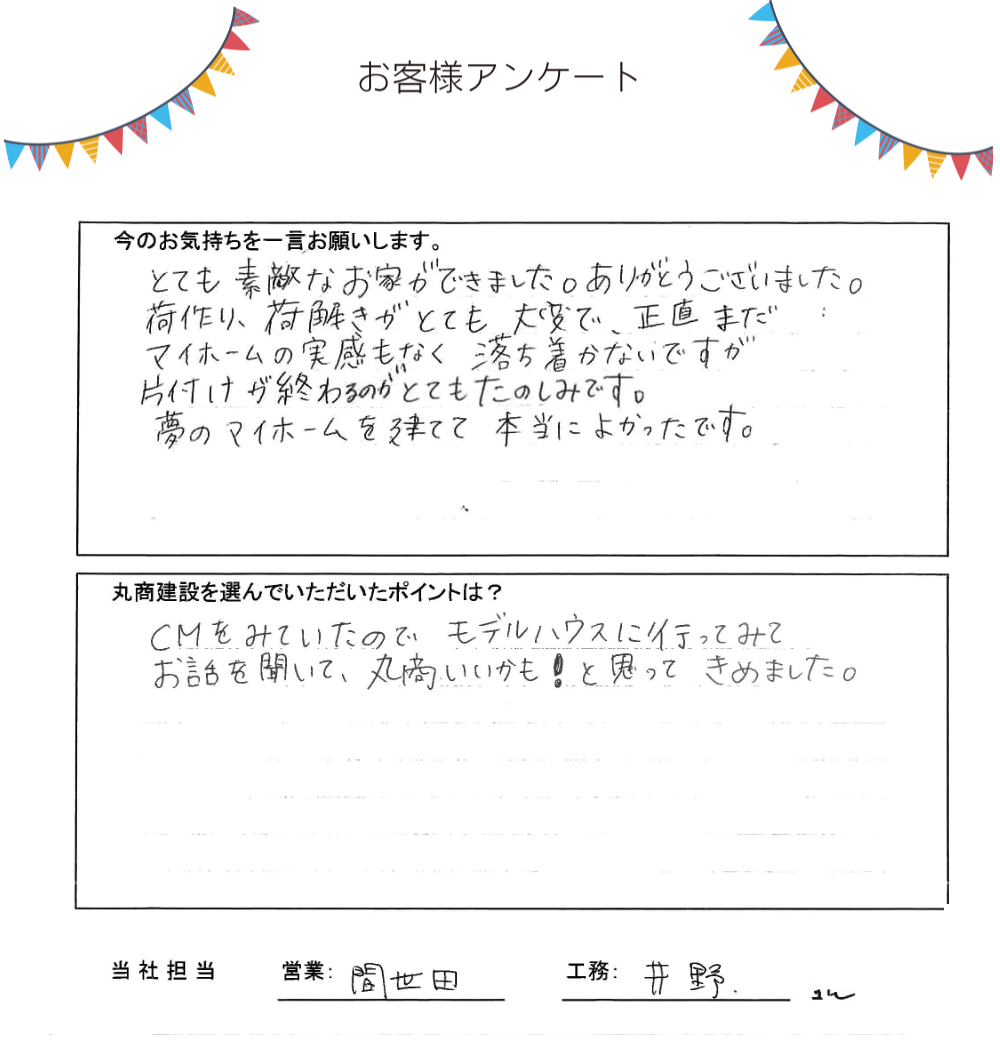 お客様アンケート
今のお気持ちを一言お願いします。
とても素敵なお家ができました。ありがとうございました。
荷作り、荷解きがとても大変で、正直まだ
マイホームの実感もなく落ち着かないですが
片付けが終わるのがとてもたのしみです。
夢のマイホームを建てて本当によかったです。
丸商建設を選んでいただいたポイントは？
CMをみていたのでモデルハウスに行ってみて
お話を聞いて、丸商いいかも！と思ってきめました。
当社担当 営業: 間世田 工務: 井野.